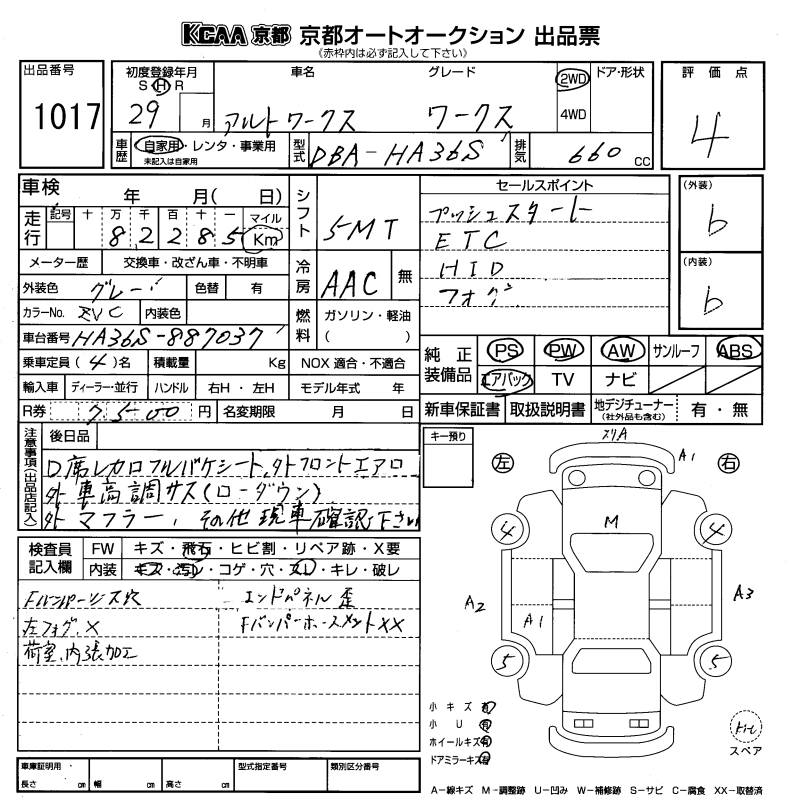 KCAA 京都 京都オートオークション 出品票
(赤枠内は必ず記入して下さい)
出品番号 初度登録年月 車名 グレード ドア・形状 評価点
S H R 2WD
1017 29 月 アルトワークス ワークス 4WD 4
車歴 自家用・レンタ・事業用 型式 DBA-HA36S 排気 660 cc
未記入は自家用
車検 年 月( 日) シフト 5MT セールスポイント (外装)
走行 記号 十 万 千 百 十 一 マイル プッシュスタート b
8 2 2 8 5 Km ETC
メーター歴 交換車・改ざん車・不明車 冷房 AAC 無 HID (内装)
外装色 グレー 色替 有 フォグ b
カラーNo. ZVC 内装色 燃料 ガソリン・軽油
車台番号 HA36S-887037 ( )
乗車定員 (4)名 積載量 Kg NOX 適合・不適合 純正装備品 PS PW AW サンルーフ ABS
輸入車 ディーラー・並行 ハンドル 右H・左H モデル年式 年 エアバック TV ナビ
R券 7500 円 名変期限 月 日 新車保証書 取扱説明書 地デジチューナー 有・無
(社外品も含む)
注意事項(出品店記入) 後日品
D席レカロフルバケシート、外フロントエアロ
外車高調サス(ローダウン)
外マフラー、その他現車確認下さい
キー預り
スリA
左 右
A1
4 M 4
A2 A1 A3
5 5
検査員記入欄 FW キズ・飛石・ヒビ割・リペア跡・X要
内装 キズ・汚レ・コゲ・穴・スレ・キレ・破レ
Fバンパーリンス穴 エンドパネル歪
左フォグ、X FバンパーホースメントXX
荷室、内張加工
小キズ 有
小U 有
ホイールキズ 有
ドアミラーキズ 有
スペア
車庫証明用 型式指定番号 類別区分番号
長さ cm 幅 cm 高さ cm
A−線キズ M−調整跡 U−凹み W−補修跡 S−サビ C−腐食 XX−取替済